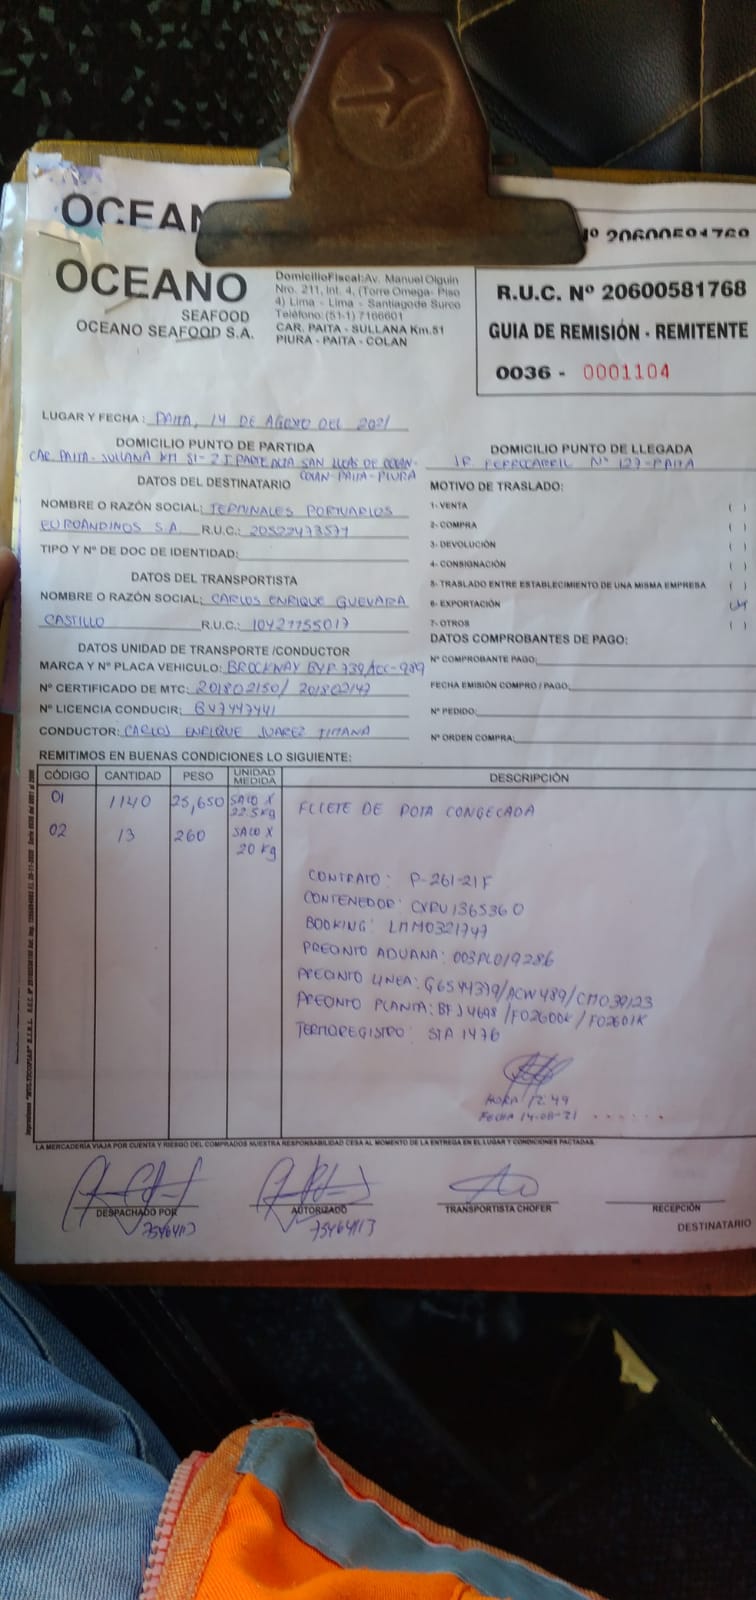 OCEAN
Nº 20600581768
OCEANO
SEAFOOD
OCEANO SEAFOOD S.A.
DomicilioFiscal: Av. Manuel Olguin
Nro. 211, Int. 4, (Torre Omega- Piso
4) Lima - Lima - Santiagode Surco
Teléfono: (51-1) 7166601
CAR. PAITA - SULLANA Km.51
PIURA - PAITA - COLAN
R.U.C. Nº 20600581768
GUIA DE REMISIÓN - REMITENTE
0036 - 0001104
LUGAR Y FECHA: PAITA, 14 DE AGOSTO DEL 2021
DOMICILIO PUNTO DE PARTIDA
CAR. PAITA - SULLANA KM 51-2 I PARTE ALTA SAN LUCAS DE COLAN-
COLAN-PAITA-PIURA
DOMICILIO PUNTO DE LLEGADA
JR FERROCARRIL Nº 127-PAITA
DATOS DEL DESTINATARIO
NOMBRE O RAZÓN SOCIAL: TERMINALES PORTUARIOS
EUROANDINOS S.A. R.U.C.: 20522473571
TIPO Y Nº DE DOC DE IDENTIDAD:
DATOS DEL TRANSPORTISTA
NOMBRE O RAZÓN SOCIAL: CARLOS ENRIQUE GUEVARA
CASTILLO R.U.C.: 10427755017
DATOS UNIDAD DE TRANSPORTE /CONDUCTOR
MARCA Y Nº PLACA VEHICULO: BROCKWAY BYF 739/ACC-989
Nº CERTIFICADO DE MTC: 201802150/ 201802147
Nº LICENCIA CONDUCIR: B47447441
CONDUCTOR: CARLOS ENRIQUE JUAREZ TIMANA
MOTIVO DE TRASLADO:
1- VENTA ( )
2- COMPRA ( )
3- DEVOLUCIÓN ( )
4- CONSIGNACIÓN ( )
5- TRASLADO ENTRE ESTABLECIMIENTO DE UNA MISMA EMPRESA ( )
6- EXPORTACIÓN
7- OTROS ( )
DATOS COMPROBANTES DE PAGO:
Nº COMPROBANTE PAGO:
FECHA EMISIÓN COMPRO / PAGO:
Nº PEDIDO:
Nº ORDEN COMPRA:
REMITIMOS EN BUENAS CONDICIONES LO SIGUIENTE:
CÓDIGO CANTIDAD PESO UNIDAD MEDIDA DESCRIPCIÓN
01 1140 25,650 SACO X 22.5 Kg FILETE DE POTA CONGELADA
02 13 260 SACO X 20 Kg
CONTRATO: P-261-21F
CONTENEDOR: CXRU1365360
BOOKING: LMM0321747
PRECINTO ADUANA: 003PL019286
PRECINTO LINEA: G6544379/ACW489/CMO39123
PRECINTO PLANTA: BFJ4698 /F02600K / F02601K
TERMOREGISTRO: STA 1476
HORA 12:49
FECHA 14-08-21
LA MERCADERÍA VIAJA POR CUENTA Y RIESGO DEL COMPRADOS NUESTRA RESPONSABILIDAD CESA AL MOMENTO DE LA ENTREGA EN EL LUGAR Y CONDICIONES PACTADAS.
DESPACHADO POR
AUTORIZADO
TRANSPORTISTA CHOFER
RECEPCIÓN
75464113
75464113
DESTINATARIO